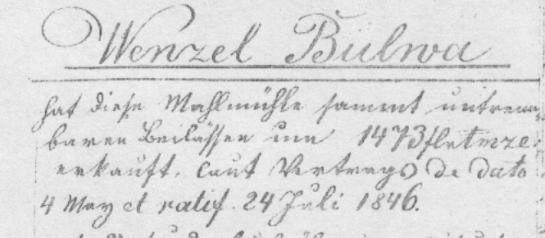 Wenzel Bulwa
hat diese Mahlmühle sammt untrenn-
baren Beilässen um 1473 fl
erkauft. Laut Vertrags de dato
4 May et ratif. 24 Juli 1846.